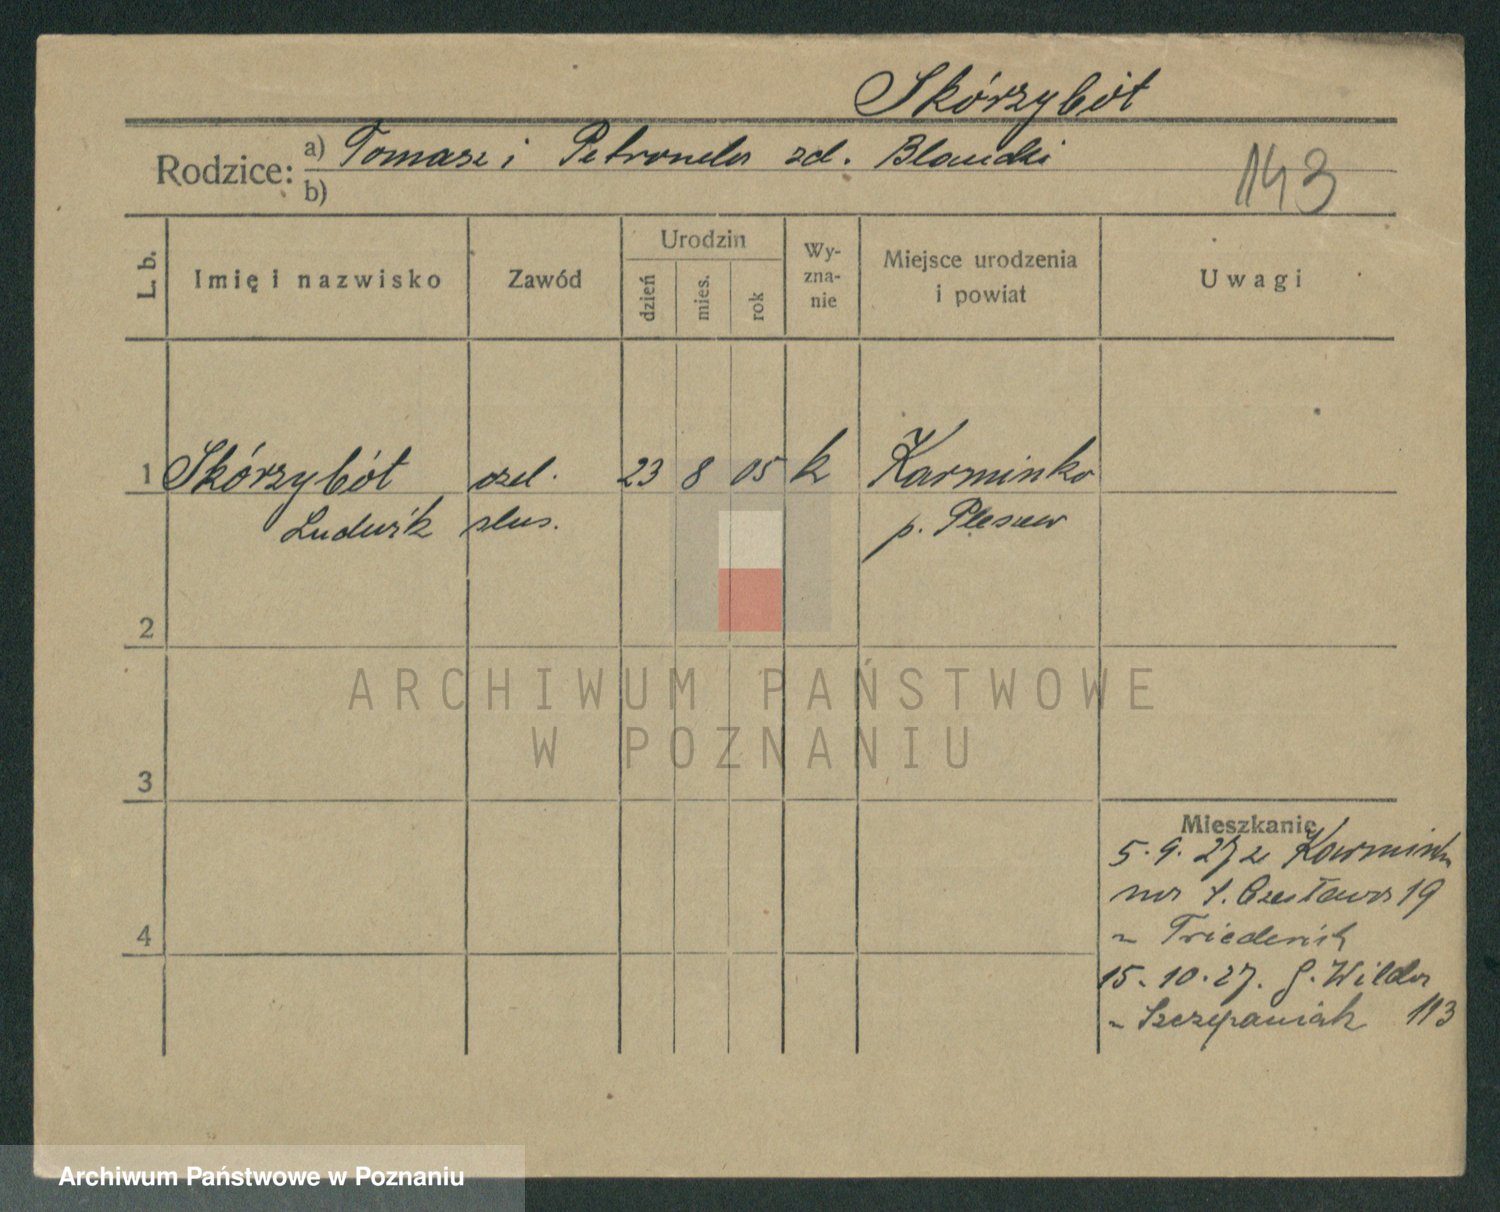 Skórzybót
Rodzice: a) Tomasz i Petronela zd. Blandzi
b)
143
L. b.
Imię i nazwisko
Zawód
Urodzin
dzień
mies.
rok
Wy-
zna-
nie
Miejsce urodzenia
i powiat
Uwagi
1 Skórzybót czel. 23 8 05 k Karminko
Ludwik slus. p. Pleszew
2
ARCHIWUM PAŃSTWOWE
W POZNANIU
3
Mieszkanie
5.9.27 z Karmink
na Czesława 19
" Friederich
4
15.10.27. G. Wilda
" Szczepaniak 113
Archiwum Państwowe w Poznaniu